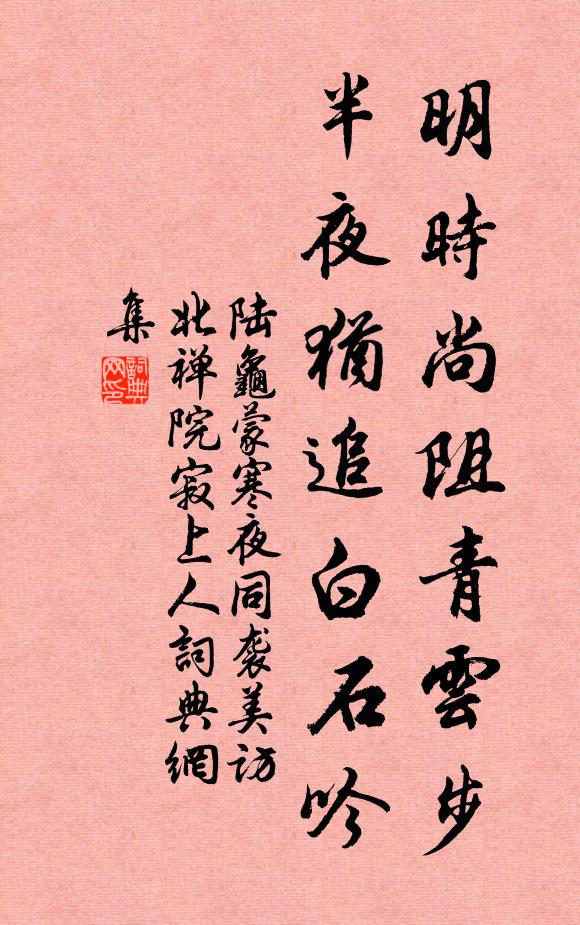 明時尚阻青雲步
半夜猶追白石吟
陸龜蒙寒夜同襲美訪
北禅院寂上人詞典網
集
詞典
网印